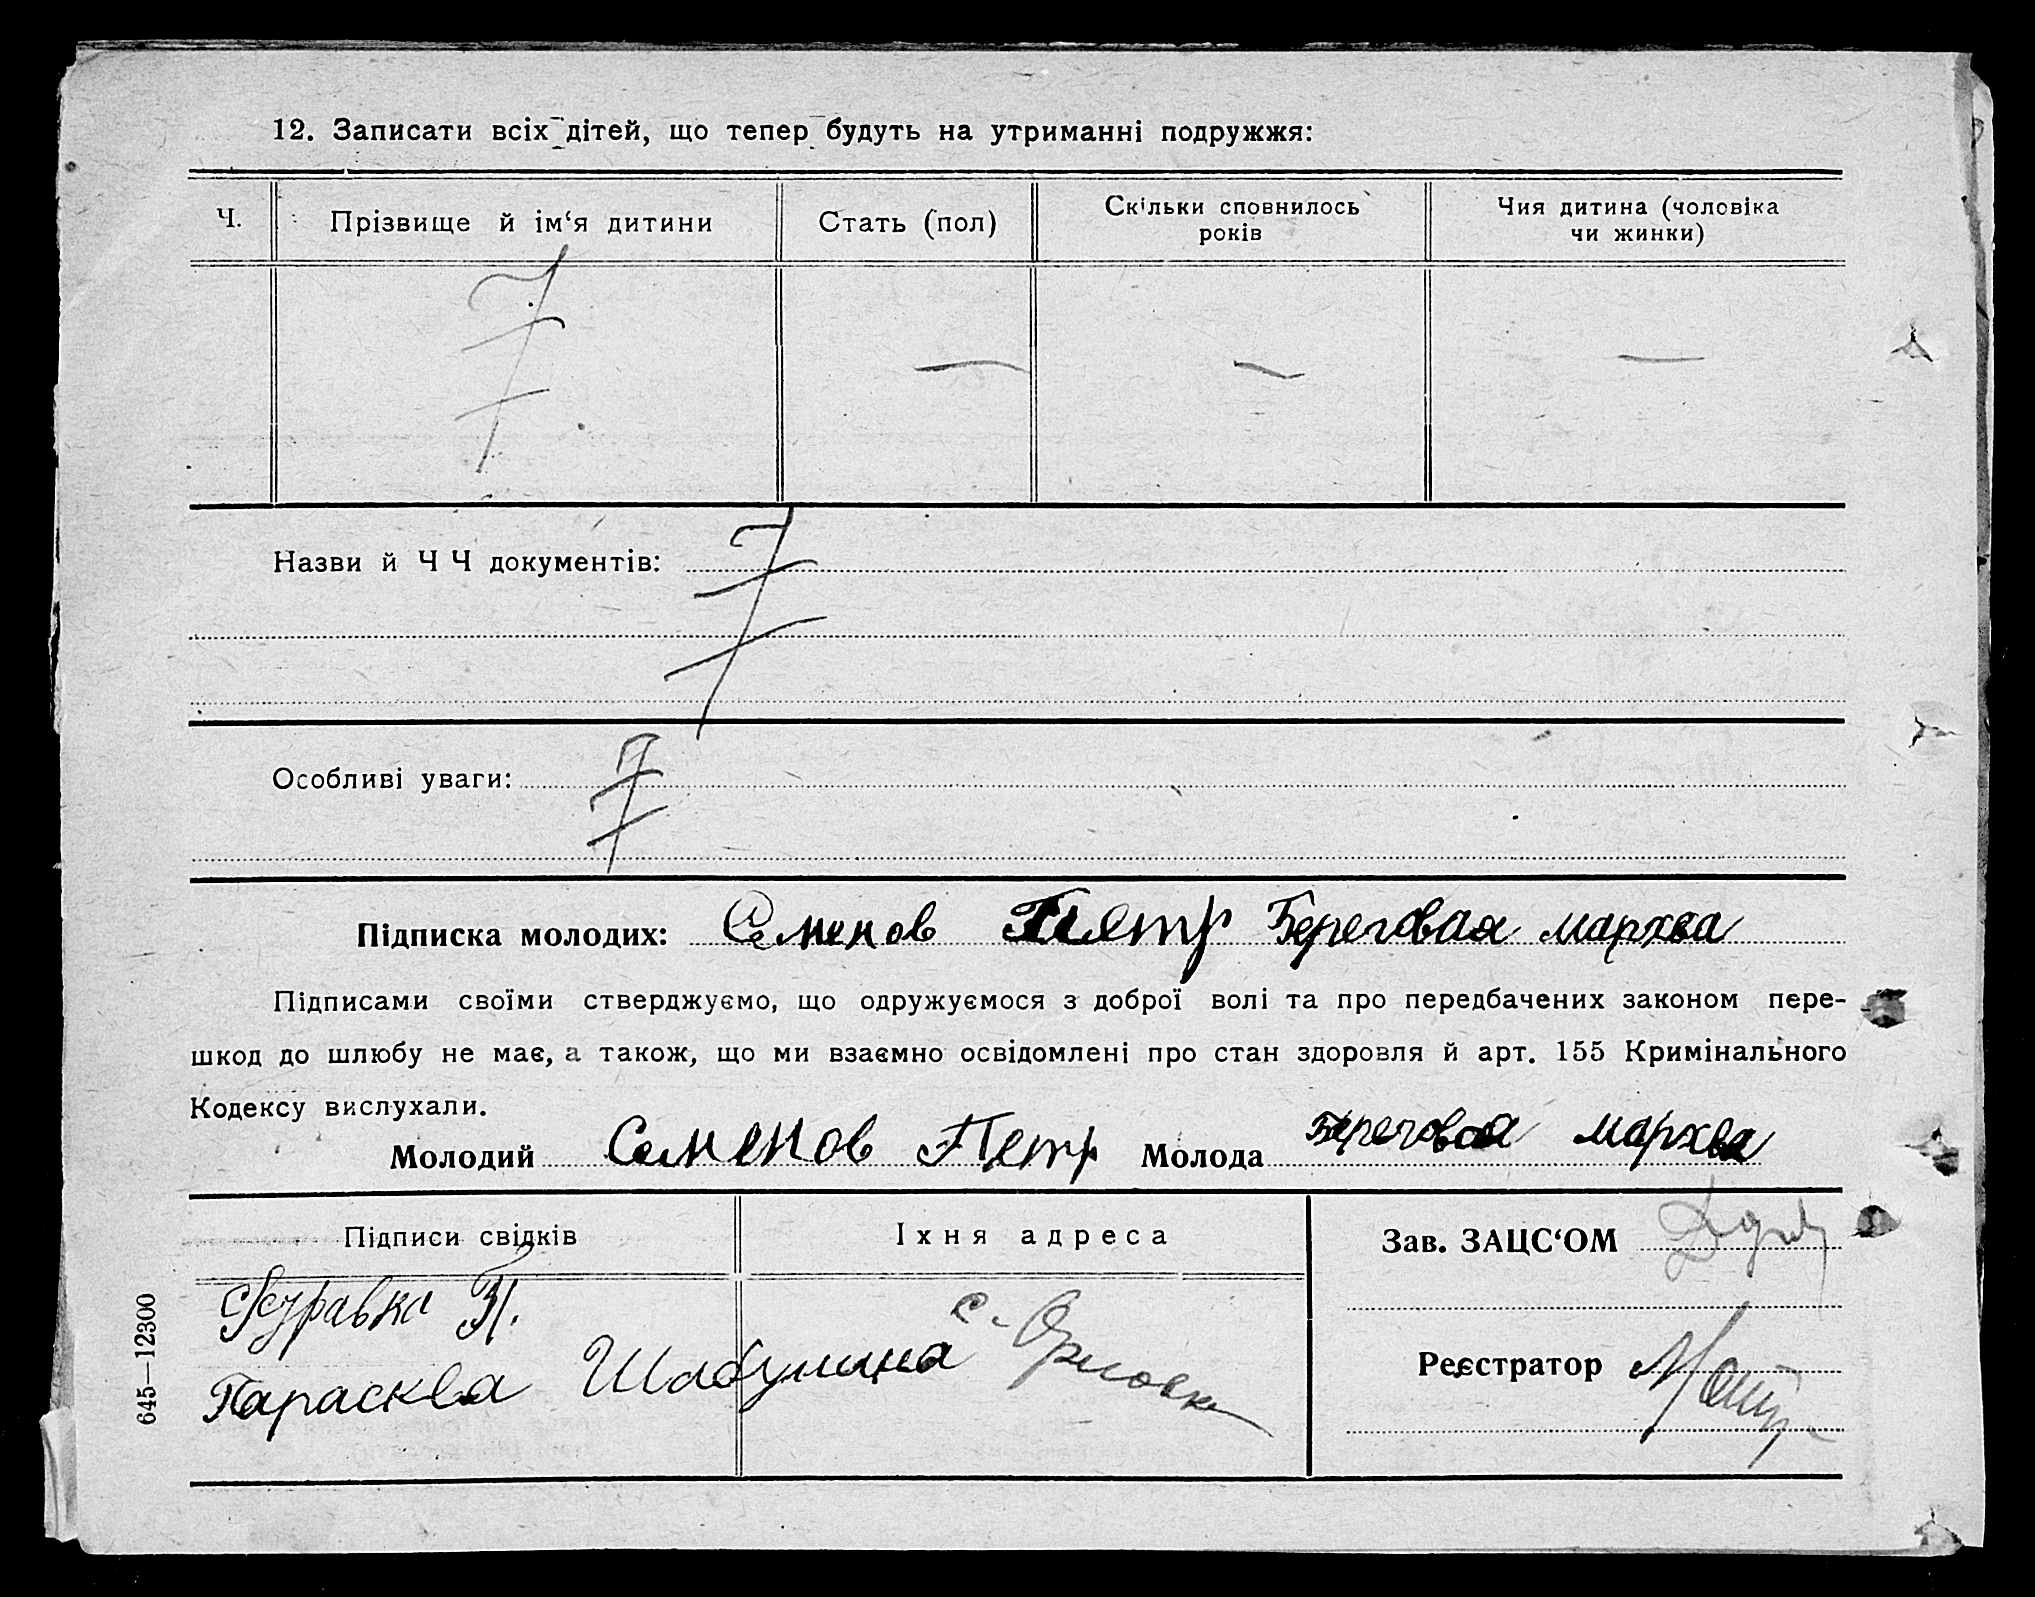 12. Записати всіх дітей, що тепер будуть на утриманні подружжя:
Ч. Прізвище й ім‘я дитини Стать (пол) Скільки сповнилось років Чия дитина (чоловіка чи жинки)
— — —
Назви й Ч Ч документів:
Особливі уваги:
Підписка молодих: Семенов Петр Береговая мархва
Підписами своїми стверджуємо, що одружуємося з доброї волі та про передбачених законом пере-
шкод до шлюбу не має, а також, що ми взаємно освідомлені про стан здоровля й арт. 155 Кримінального
Кодексу вислухали.
Молодий Семенов Петр Молода Береговая мархва
Підписи свідків Іхня адреса Зав. ЗАЦС‘ОМ
Журавка П. с. Орловка
Параска Шабунина
Реєстратор
645—12300